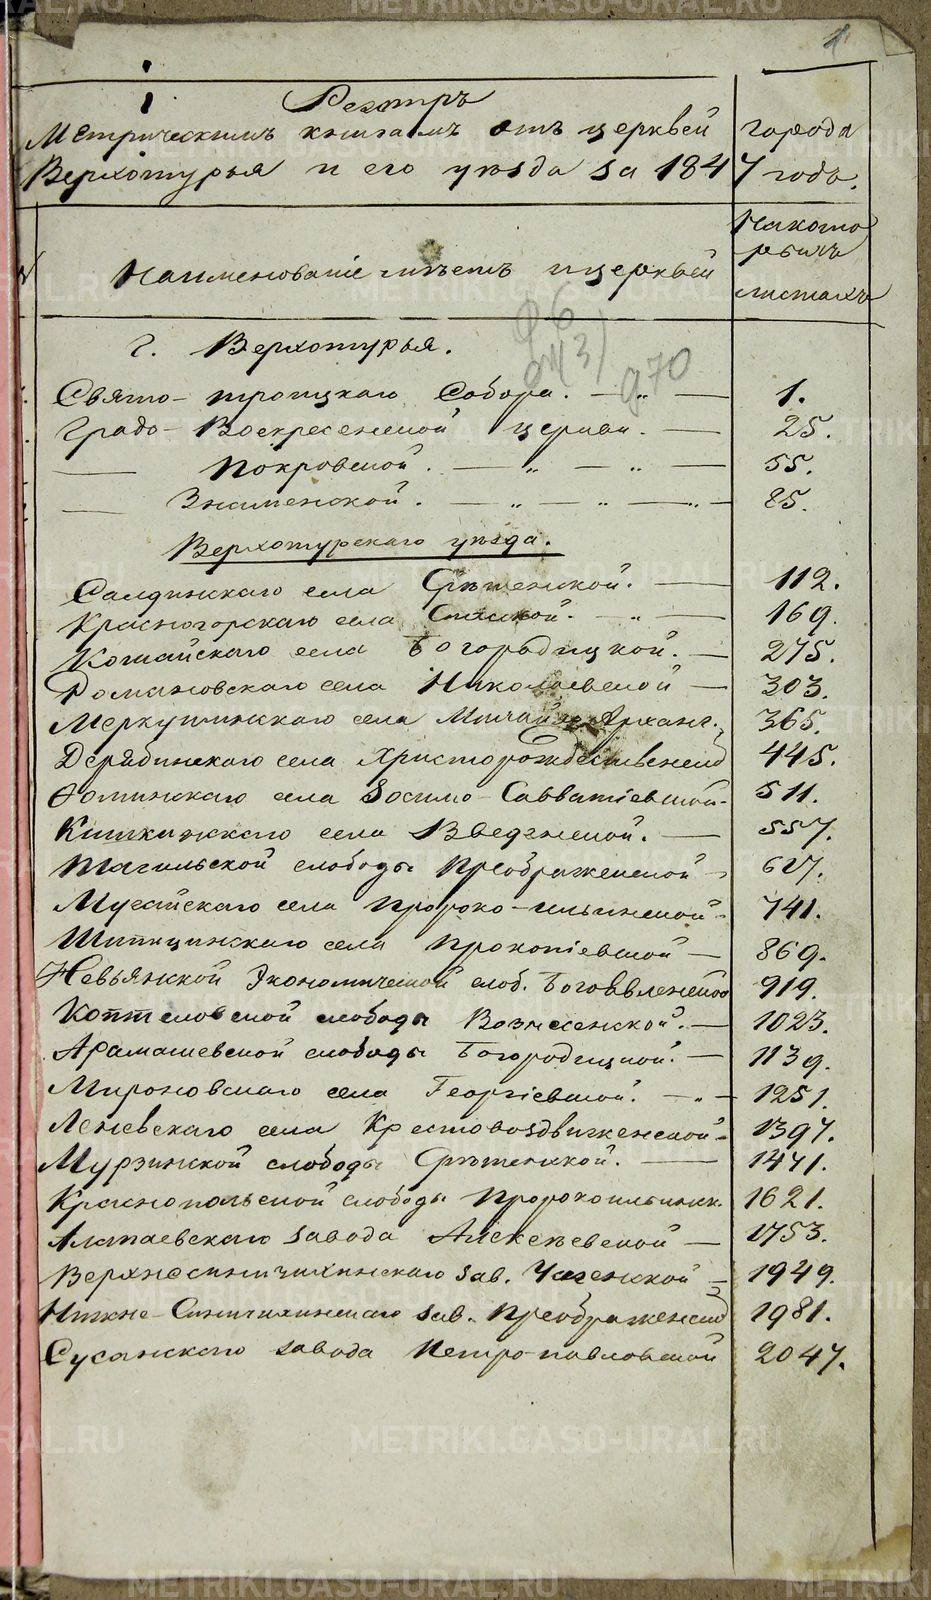 Реэстръ
Метрическимъ книгамъ отъ церквей города
Верхотурья и его уѣзда за 1847 годъ.
Наименованіе мѣстъ и церквей
На кото
рыхъ
листахъ
г. Верхотурья.
Свято-троицкаго Собора. — „ — 1.
Градо-Воскресенской церкви. — 25.
— Покровской. — „ — „ — 55.
— Знаменской. — „ — „ — „ — 85.
Верхотурскаго уѣзда.
Салдинскаго села Срѣтенской. — 112.
Красногорскаго села Спаской. — „ — 169.
Кошайскаго села Богородицкой. — 275.
Романовскаго села Николаевской — 303.
Меркушинскаго села Михайло-Арханг. 365.
Дерябинскаго села Христорождественской 445.
Ѳоминскаго села Зосимо-Савватіевской. 511.
Кишкинскаго села Введенской. — 557.
Тагильской слободы Преображенской — 627.
Мугайскаго села Пророко-ильинской. 741.
Шипицинскаго села Прокопіевской — 869.
Невьянской Экономической слоб. Богоявленской 919.
Коптеловской слободы Вознесенской. — 1023.
Арамашевской слободы Богородицкой. — 1139.
Мироновскаго села Георгіевской. — „ — 1251.
Леневскаго села Крестовоздвиженской. 1397.
Мурзинской слободы Срѣтенской. — 1471.
Краснопольской слободы Пророкоильинск. 1621.
Алапаевскаго завода Алексѣевской — 1753.
Верхнесинячихинскаго зав. Успенской — 1949.
Нижне-Синячихинскаго зав. Преображенской 1981.
Сусанскаго завода Петро-павловской 2047.
ф 6
оп 3
д 70
METRIKI.GASO-URAL.RU